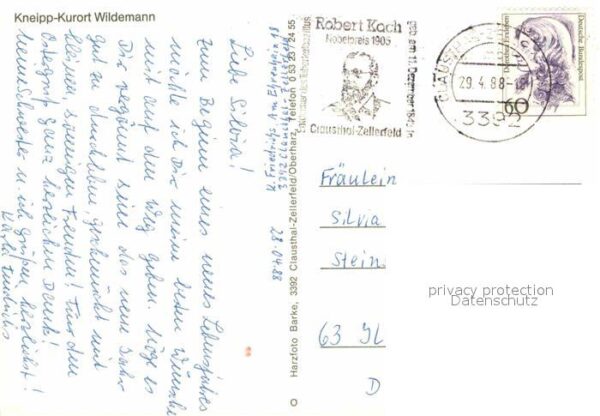 Kneipp-Kurort Wildemann
Liebe Silvia!
Zum Beginn eines neuen Lebensjahres
möchte ich Dir meine besten Wünsche
auf den Weg geben. Möge es
Dir vergönnt sein das neue Jahr
gut zu durchleben, geschmückt mit
kleinen, sonnigen Freuden! Für den
Ostergruß ganz herzlichen Dank!
Meine Schwester u. ich grüßen herzlichst!
Karla
28.04.88
O Harzfoto Barke, 3392 Clausthal-Zellerfeld/Oberharz, Telefon 0 53 23 / 24 55
Robert Koch
Nobelpreis 1905
geb. am 11. Dezember 1843 in
Clausthal-Zellerfeld
29.4.88-18
3392
Deutsche Bundespost
60
Fräulein
Silvia
Stein
63 GL
D
privacy protection
Datenschutz